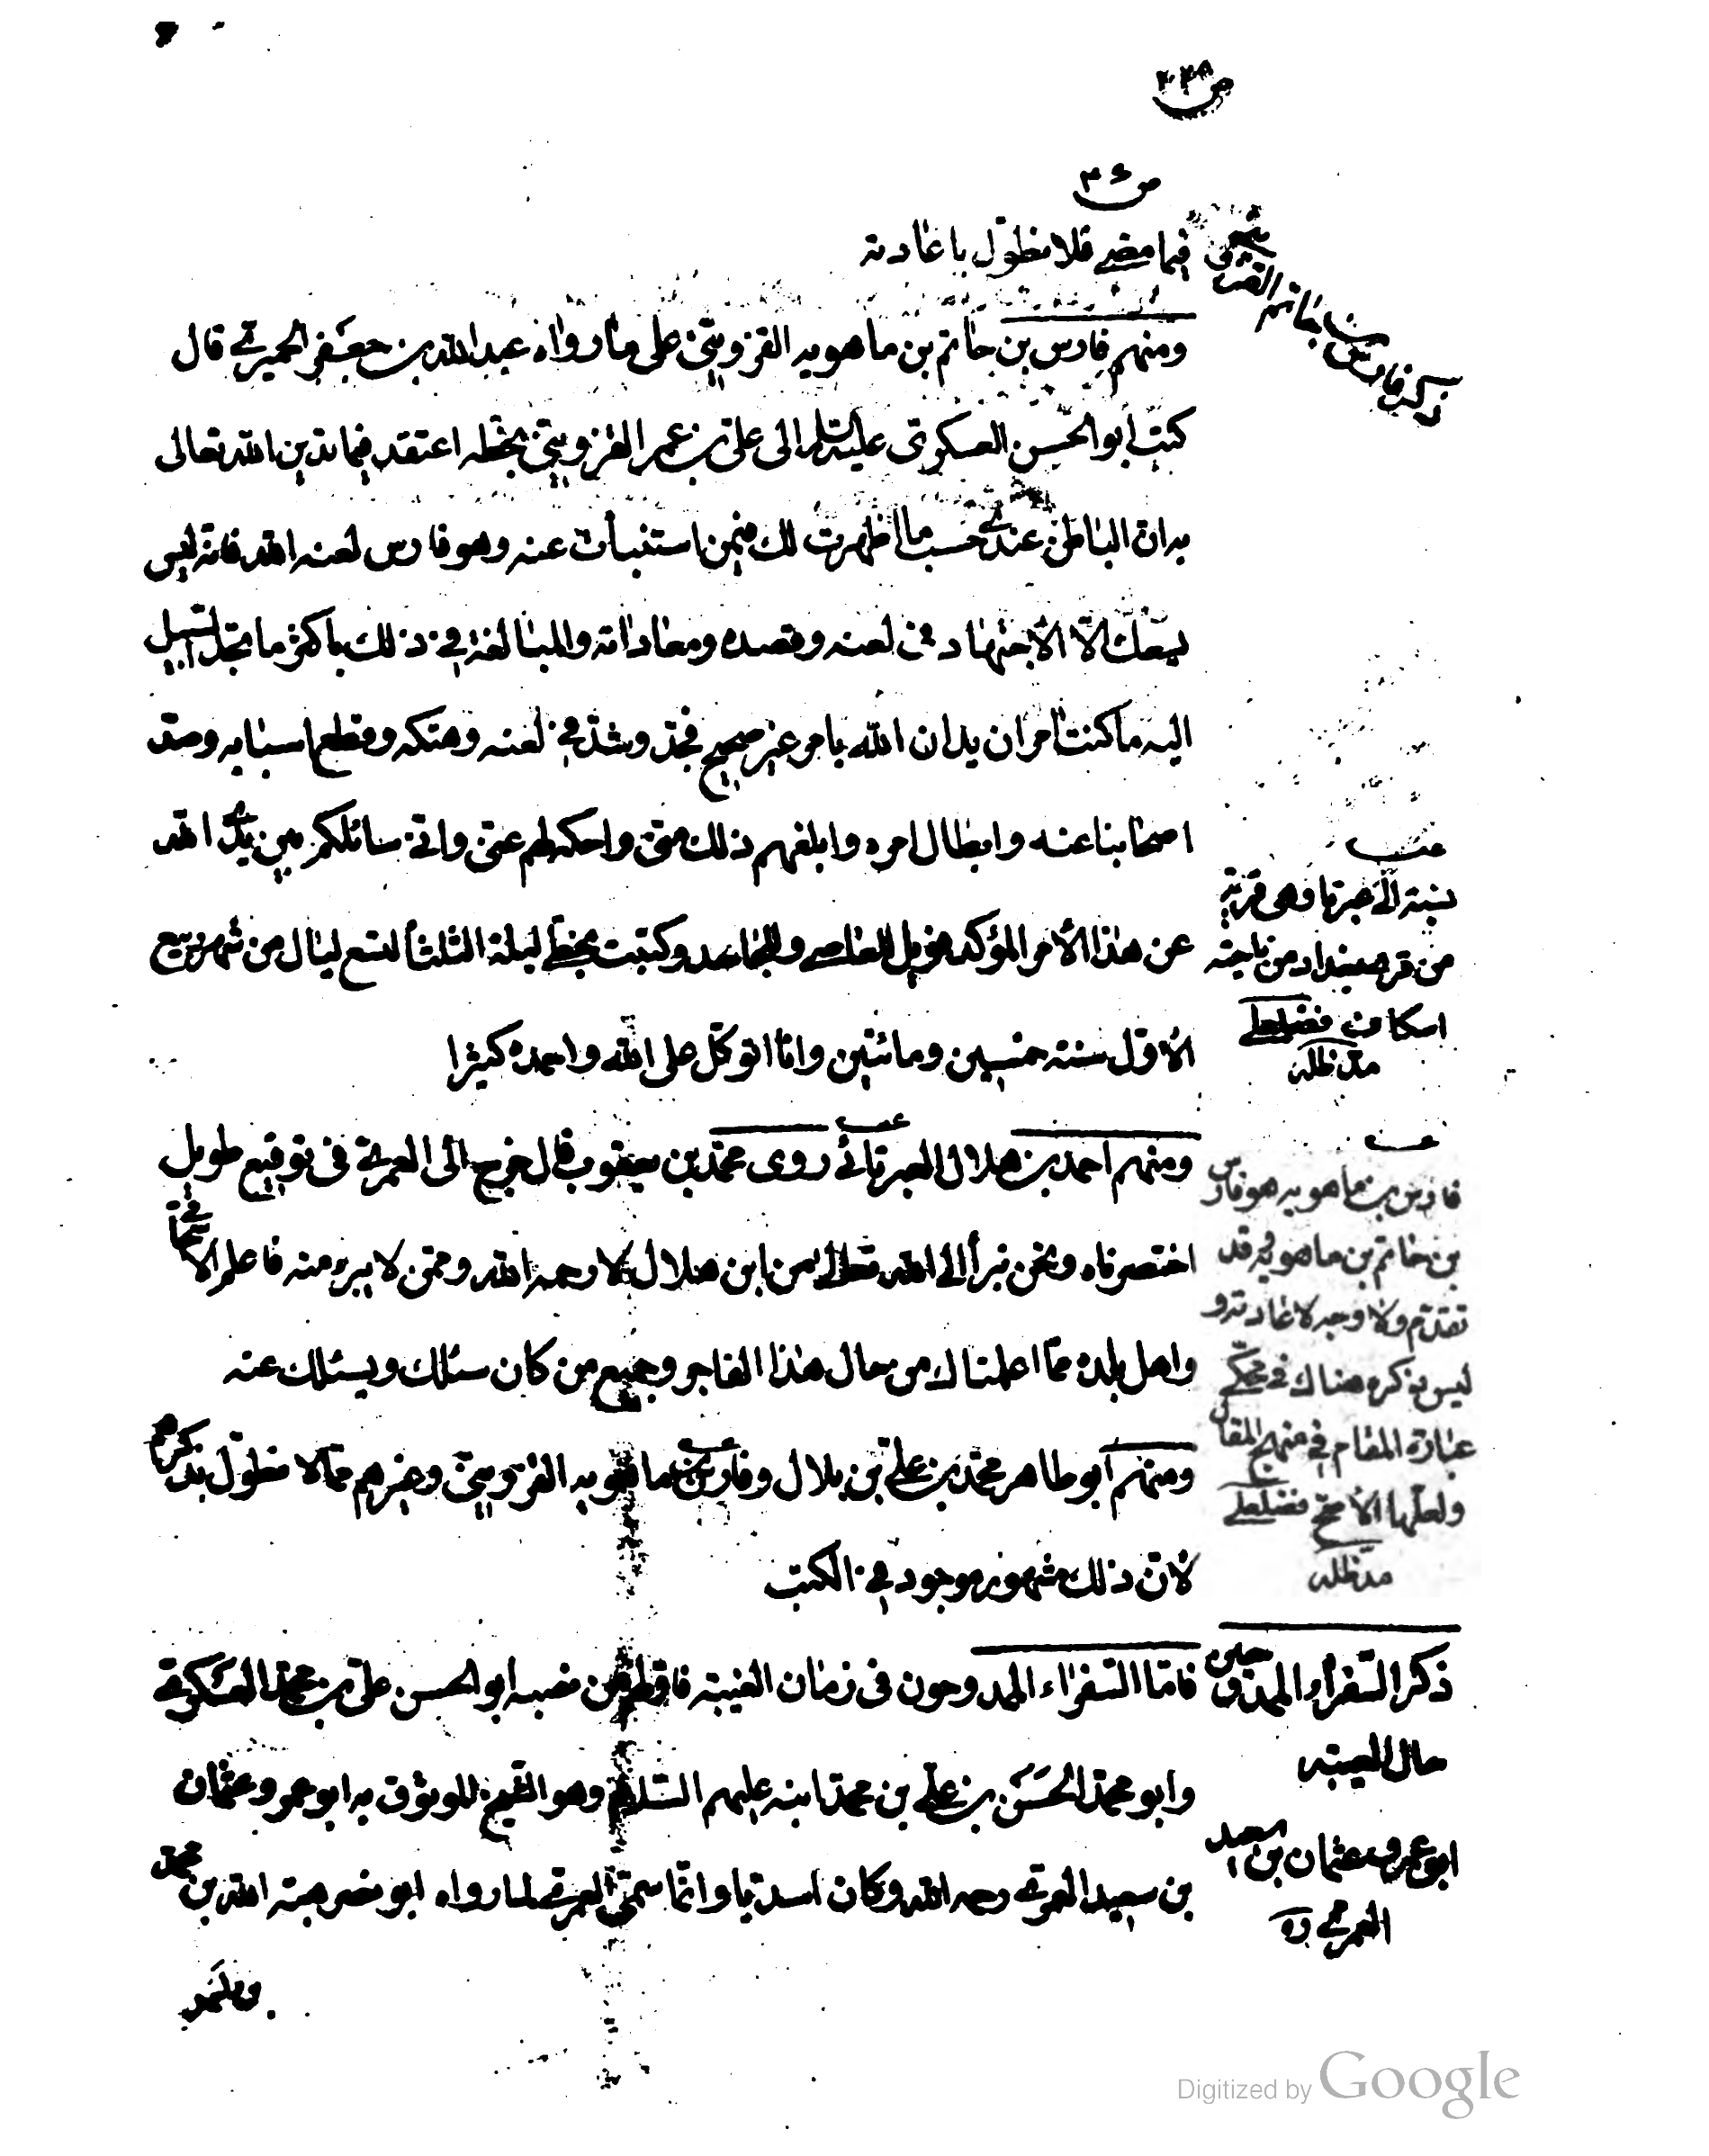 ص ٢٣٨
ص ٤ ٣
فيما مضى فلا نطول باعادته
ذكر فارس بن حاتم القزويني
ومنهم فارس بن حاتم بن ماهويه القزويني على ما رواه عبد الله بن جعفر الحميري قال
كتب ابو الحسن العسكري عليه السلم الى علي بن عمر القزويني بخطه اعتقد فيما تدين الله تعالى
به ان الباطن عندي حسب ما اظهرت لك فيمن استنبأت عنه وهو فارس لعنه الله فانه ليس
يسعك الا الاجتهاد في لعنه وقصده ومعاداته والمبالغة في ذلك باكثر ما تجد السبيل
اليه ما كنت امر ان يدان الله بامر غير صحيح فجد وشد في لعنه وهتكه وقطع اسبابه وصد
اصحابنا عنه وابطال امره وابلغهم ذلك مني واحكه لهم عني واني سائلكم بين يدي الله
عن هذا الأمر المؤكد فويل للعاصي وللجاحد وكتبت بخطي ليلة الثلثا لتسع ليال من شهر ربيع
الأول سنة خمسين ومائتين وانا اتوكل على الله واحمده كثيرا
نسبة الى عبرتا وهى قرية
من قرى بغداد من ناحية
اسكاف
مد ظله
ومنهم احمد بن هلال العبرتائي روى محمد بن يعقوب قال خرج الى العمري في توقيع طويل
اختصرناه ونحن نبرأ الى الله تعالى من ابن هلال لا رحمه الله وممن لا يبرء منه فاعلم الاسحاقي
واهل بلده مما اعلمناك من حال هذا الفاجر وجميع من كان سئلك ويسئلك عنه
ومنهم ابو طاهر محمد بن علي بن بلال وفارس بن ماهويه القزويني وغيرهم مما لا نطول بذكرهم
لأن ذلك مشهور موجود في الكتب
فارس بن ماهويه هو فارس
بن حاتم بن ماهويه قد
تقدم ولا وجه لاعادته و
ليس بذكره هناك في محكي
عبارة المقام في منهج المقال
ولعلها الأصح
مد ظله
ذكر السفراء الممدوحين
حال الغيبة
فاما السفراء الممدوحون في زمان الغيبة فاولهم من نصبه ابو الحسن علي بن محمد العسكري
وابو محمد الحسن بن علي بن محمد ابنه عليهم السلام وهو الشيخ الموثوق به ابو عمرو عثمان
ابو عمرو عثمان بن سعيد
العمري ره
بن سعيد العمري رحمه الله وكان اسديا وانما سمي العمري لما رواه ابو نصر هبة الله بن محمد